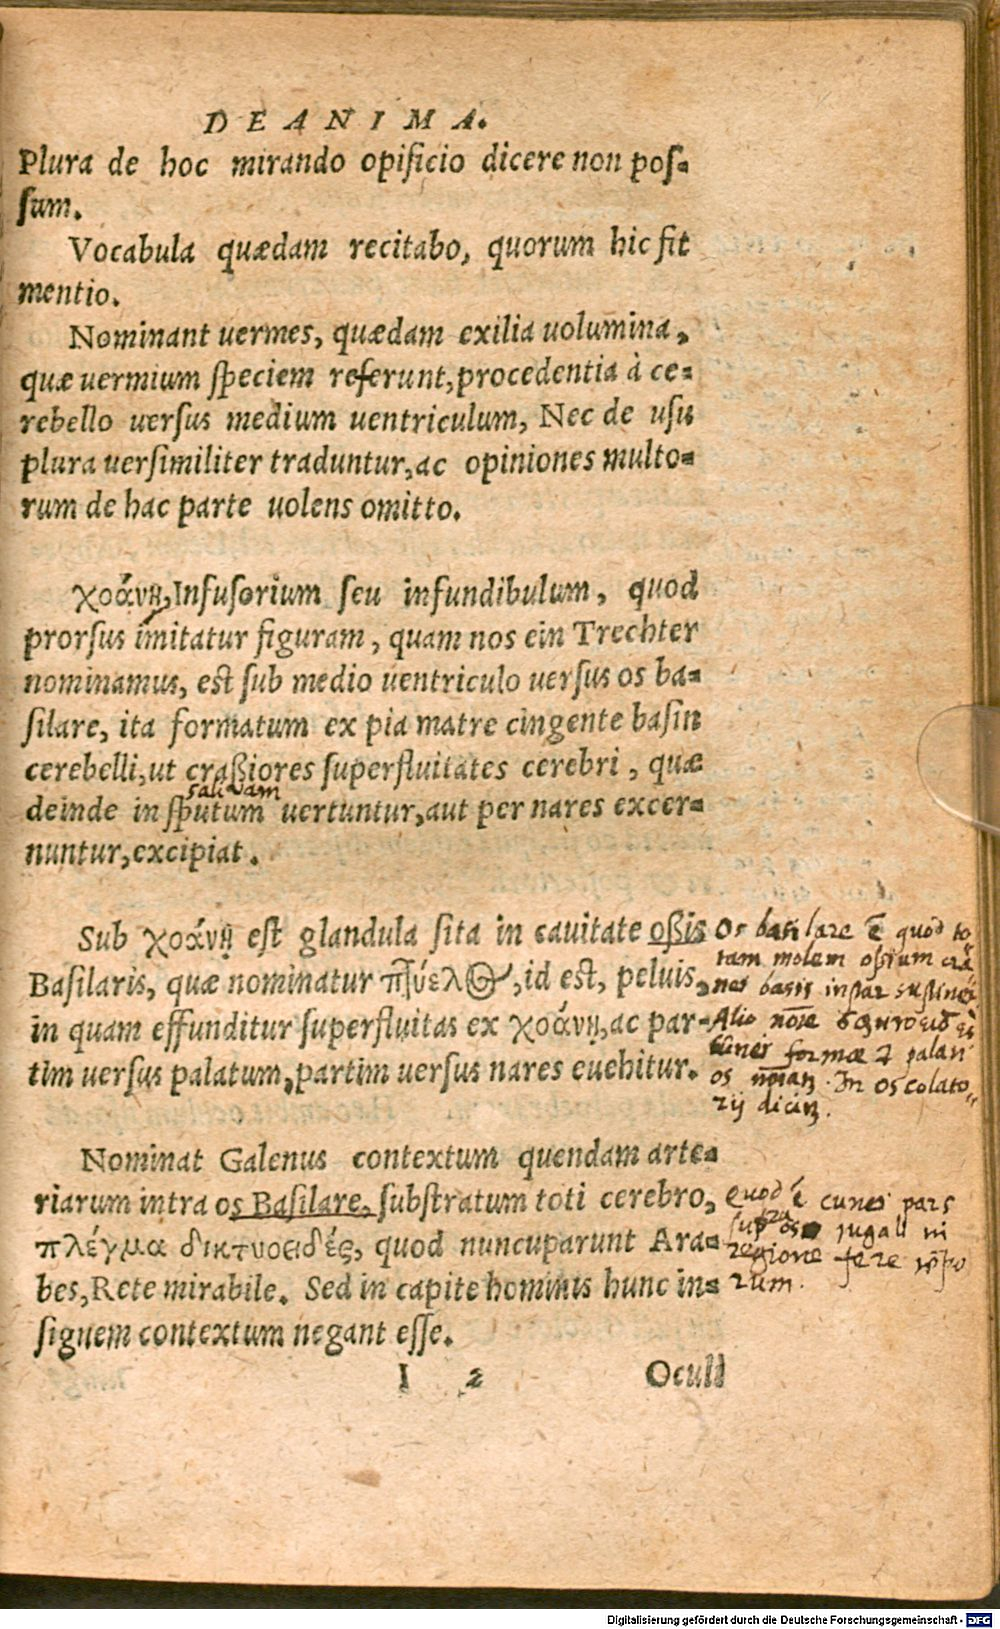 DE ANIMA.
Plura de hoc mirando opificio dicere non pos-
sum.
Vocabula quædam recitabo, quorum hic fit
mentio.
Nominant uermes, quædam exilia uolumina,
quæ uermium speciem referunt, procedentia à ce-
rebello uersus medium uentriculum, Nec de usu
plura uersimiliter traduntur, ac opiniones multo-
rum de hac parte uolens omitto.
χοάνη, Infusorium seu infundibulum, quod
prorsus imitatur figuram, quam nos ein Trechter
nominamus, est sub medio uentriculo uersus os ba-
silare, ita formatum ex pia matre cingente basin
cerebelli, ut craßiores superfluitates cerebri, quæ
salivam
deinde in sputum uertuntur, aut per nares excer-
nuntur, excipiat.
Sub χοάνῃ est glandula sita in cauitate oßis
Basilaris, quæ nominatur πύελος, id est, peluis,
in quam effunditur superfluitas ex χοάνῃ, ac par-
tim uersus palatum, partim uersus nares euehitur.
Os basilare ē quod to-
tam molem ossium cra-
nei basis instar sustinet
Alio
cunei formæ palati
os In os colato-
rij
Nominat Galenus contextum quendam arte-
riarum intra os Basilare, substratum toti cerebro,
πλέγμα δικτυοειδές, quod nuncuparunt Ara-
bes, Rete mirabile. Sed in capite hominis hunc in-
signem contextum negant esse.
quod ē cunei pars
supra os jugali in
regione fere
rum.
I 2 Oculi
Digitalisierung gefördert durch die Deutsche Forschungsgemeinschaft - DFG